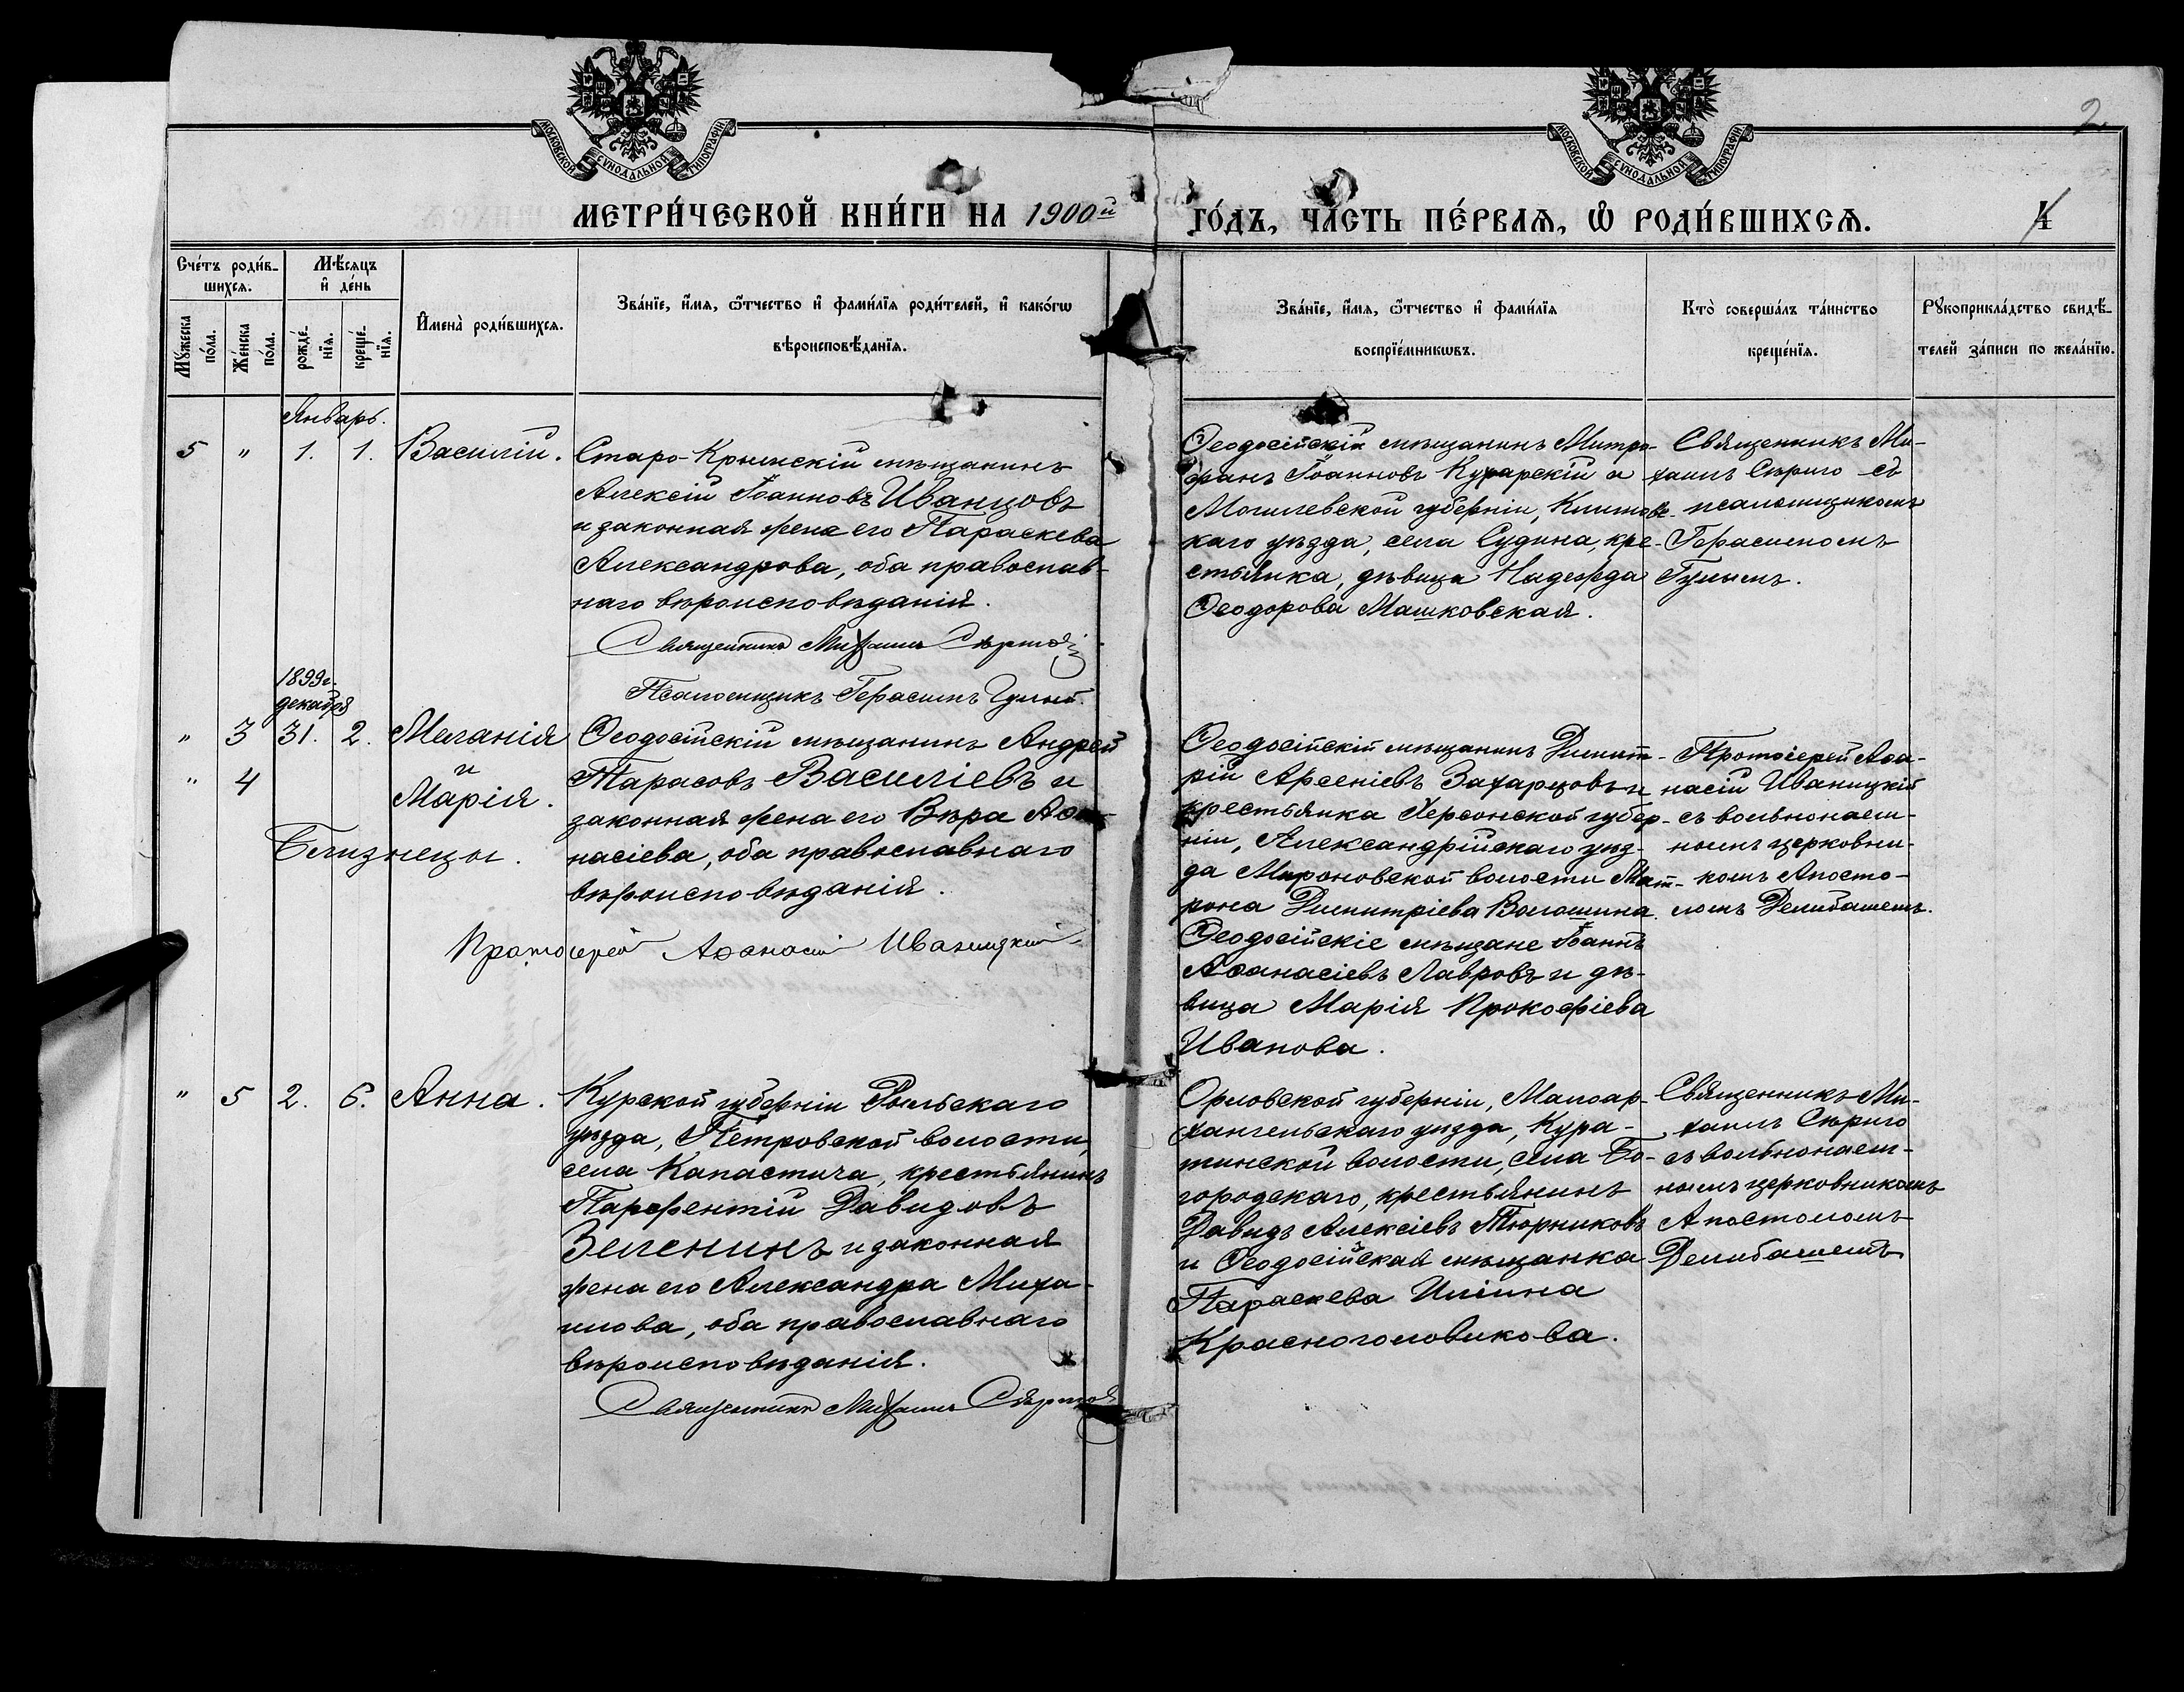 МОСКОВСКОЙ СѴНОДАЛЬНОЙ ТИПОГРАФІИ
МОСКОВСКОЙ СѴНОДАЛЬНОЙ ТИПОГРАФІИ
2
МЕТРИ́ЧЕСКОЙ КНИ́ГИ НА 1900й ГО́ДЪ, ЧА́СТЬ ПЕ́РВАЯ, Ѽ РОДИ́ВШИХСЯ.
4
Сче́тъ роди́в-
шихся.
Мѣ́сяцъ
и҆ де́нь
Мꙋжеска
по́ла.
Же́нска
по́ла.
рожде́-
нїя.
креще́-
нїя.
И҆мена̀ роди́вшихся.
Зва́нїе, и҆́мя, ѻ҆́тчество и҆ фами́лїя роди́телей, и҆ како́гѡ
вѣроисповѣ́данїя.
Зва́нїе, и҆́мя, ѻ҆́тчество и҆ фами́лїя
воспрїе́мникѡвъ.
Кто̀ соверша́лъ та́инство
креще́нїя.
Рꙋкоприкла́дство свидѣ́-
телей за́писи по жела́нїю.
Январь.
5 " 1. 1. Василій.
Старо-Крымскій мѣщанинъ
Алексій Іоанновъ Иванцовъ
и законная жена его Параскева
Александрова, оба православ-
наго вѣроисповѣданія.
Священникъ Михаилъ Сѣриго
Псаломщикъ Герасимъ
Ѳеодосійскій мѣщанинъ Митро-
фанъ Іоанновъ Кухарскій и
Могилевской губерніи, Климов-
каго уѣзда, села Судина, кре-
стьянка, дѣвица Надежда
Ѳеодорова Машковская.
Священникъ Ми-
хаилъ Сѣриго съ
псаломщикомъ
Герасимомъ
1899г.
декабря
" 3 31. 2. Меланія
и
" 4 Марія.
Близнецы.
Ѳеодосійскій мѣщанинъ Андрей
Тарасовъ Василіевъ и
законная жена его Вѣра Аѳа-
насіева, оба православнаго
вѣроисповѣданія.
Протоіерей Аѳанасій Иваницкій
Ѳеодосійскій мѣщанинъ Димит-
рій Арсеніевъ Захарцовъ и
крестьянка Херсонской губер-
ніи, Александрійскаго уѣз-
да Мироновской волости Мат-
рона Димитріева Волошина.
Ѳеодосійскіе мѣщане Іоаннъ
Аѳанасіевъ Лавровъ и дѣ-
вица Марія Прокофіева
Иванова.
Протоіерей Аѳа-
насій Иваницкій
съ вольнонаем-
нымъ церковни-
комъ Апосто-
ломъ Делибашемъ.
" 5 2. 6. Анна.
Курской губерніи Рыльскаго
уѣзда, Петровской волости,
села Капастича, крестьянинъ
Парфентій Давидовъ
Зеленинъ и законная
жена его Александра Миха-
илова, оба православнаго
вѣроисповѣданія.
Священникъ Михаилъ Сѣриго
Орловской губерніи, Малоар-
хангельскаго уѣзда, Кура-
тинской волости, села Бо-
городскаго, крестьянинъ
Давидъ Алексіевъ Тюрниковъ
и Ѳеодосійская мѣщанка
Параскева Иліина
Красноголовикова.
Священникъ Ми-
хаилъ Сѣриго
съ вольнонаем-
нымъ церковникомъ
Апостоломъ
Делибашемъ